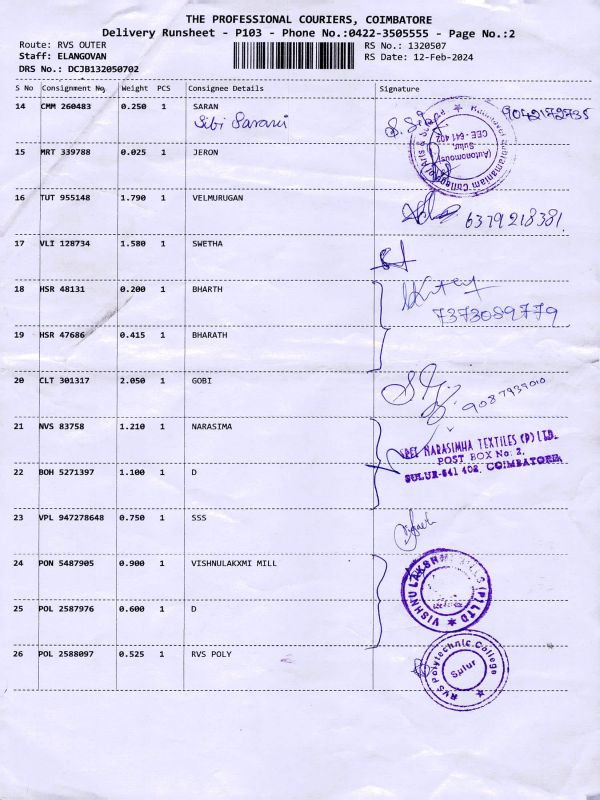 THE PROFESSIONAL COURIERS, COIMBATORE
Delivery Runsheet - P103 - Phone No.:0422-3505555 - Page No.:2
Route: RVS OUTER RS No.: 1320507
Staff: ELANGOVAN RS Date: 12-Feb-2024
DRS No.: DCJB132050702
S No Consignment No. Weight PCS Consignee Details Signature
14 CMM 260483 0.250 1 SARAN
Sibi Sarani 9042172735
(Autonomous) Sulur, CEE - 641 402
15 MRT 339788 0.025 1 JERON
16 TUT 955148 1.790 1 VELMURUGAN
6379218381
17 VLI 128734 1.580 1 SWETHA
18 HSR 48131 0.200 1 BHARTH
7373089779
19 HSR 47686 0.415 1 BHARATH
20 CLT 301317 2.050 1 GOBI
9087939010
21 NVS 83758 1.210 1 NARASIMA
SREE NARASIMHA TEXTILES (P) LTD.
POST BOX No: 2,
SULUR-641 402, COIMBATORE
22 BOH 5271397 1.100 1 D
23 VPL 947278648 0.750 1 SSS
24 PON 5487905 0.900 1 VISHNULAKXMI MILL
VISHNU LAKSHMI MILLS (P) LTD
25 POL 2587976 0.600 1 D
26 POL 2588097 0.525 1 RVS POLY
RVS Polytechnic College
Sulur